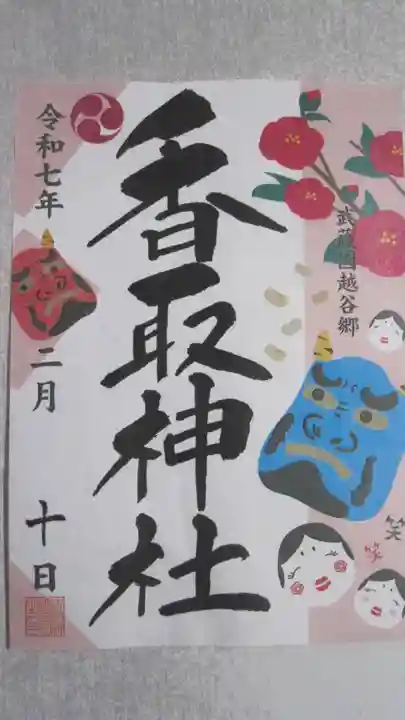 武蔵国越谷郷
香取神社
令和七年
二月
十日
笑
笑